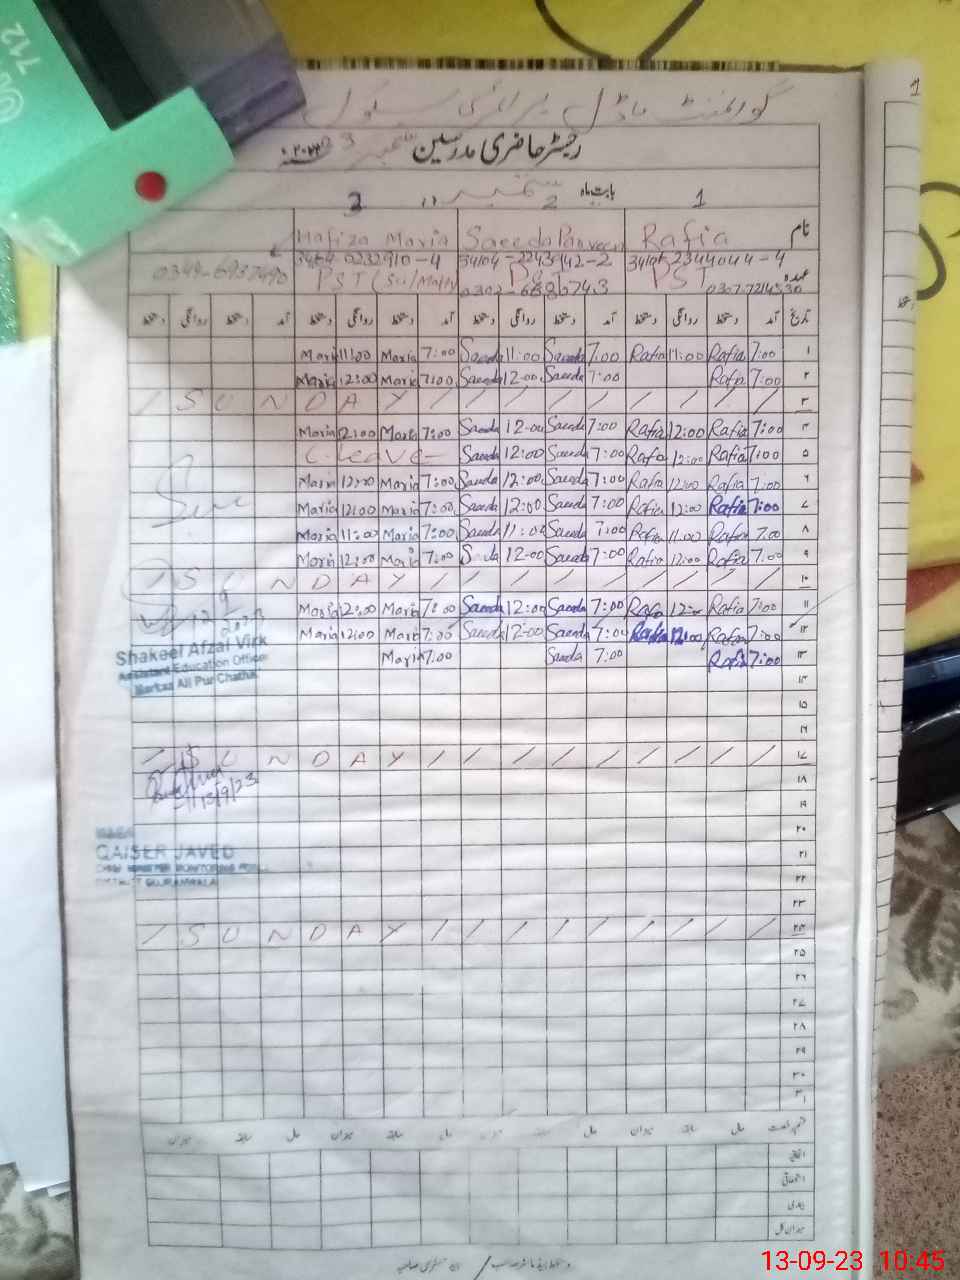 712
1
گورنمنٹ ماڈل پرائمری سکول
رجسٹر حاضری مدرسین ستمبر 23
بابت ماہ ستمبر
3 2 1
Hafiza Maria Saeeda Parveen Rafia نام
34104-2243942-2 عہدہ
0349-6937490 PST (Sci/Math) PST PST
دستخط روانگی دستخط آمد دستخط روانگی دستخط آمد دستخط روانگی دستخط آمد دستخط روانگی دستخط آمد تاریخ
Maria 11:00 Maria 7:00 Saeeda 11:00 Saeeda 7:00 Rafia 11:00 Rafia 7:00 ۱
Maria 12:00 Maria 7:00 Saeeda 12:00 Saeeda 7:00 Rafia 7:00 ۲
/ S U N D A Y / / / / / / / / / ۳
Maria 12:00 Maria 7:00 Saeeda 12:00 Saeeda 7:00 Rafia 12:00 Rafia 7:00 ۴
C-leave- Saeeda 12:00 Saeeda 7:00 Rafia 12:00 Rafia 7:00 ۵
Maria 12:00 Maria 7:00 Saeeda 12:00 Saeeda 7:00 Rafia 12:00 Rafia 7:00 ۶
Maria 12:00 Maria 7:00 Saeeda 12:00 Saeeda 7:00 Rafia 12:00 Rafia 7:00 ۷
Maria 11:00 Maria 7:00 Saeeda 11:00 Saeeda 7:00 Rafia 11:00 Rafia 7:00 ۸
Maria 12:00 Maria 7:00 Saeeda 12:00 Saeeda 7:00 Rafia 12:00 Rafia 7:00 ۹
/ S U N D A Y / / / / / / / / / ۱۰
Maria 12:00 Maria 7:00 Saeeda 12:00 Saeeda 7:00 Rafia 12:00 Rafia 7:00 ۱۱
Maria 12:00 Maria 7:00 Saeeda 12:00 Saeeda 7:00 Rafia 12:00 Rafia 7:00 ۱۲
Maria 7:00 Saeeda 7:00 Rafia 7:00 ۱۳
Shakeel Afzal Virk
Assistant Education Officer
Markaz Ali Pur Chatha
۱۴
۱۵
۱۶
/ S U N D A Y / / / / / / / / / ۱۷
۱۸
13/9/23
۱۹
۲۰
QAISER JAVED
DISTRICT GUJRANWALA
۲۱
۲۲
۲۳
/ S U N D A Y / / / / / / / / / ۲۴
۲۵
۲۶
۲۷
۲۸
۲۹
۳۰
۳۱
میزان سابقہ حال میزان سابقہ حال میزان سابقہ حال میزان سابقہ حال قسم رخصت
اتفاقیہ
استحقاقی
بیماری
میزان کل
13-09-23 10:45